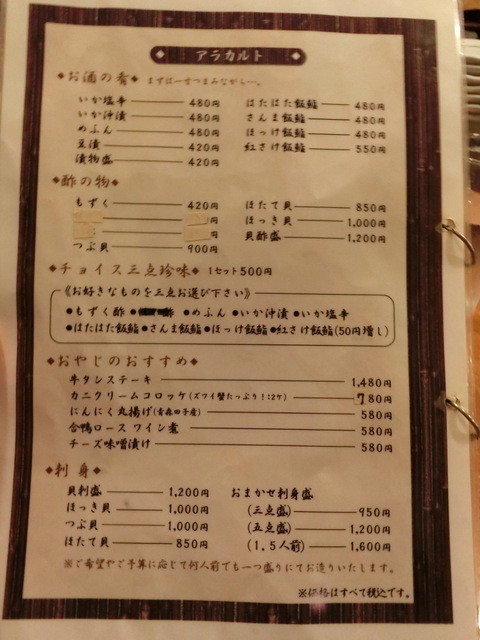 ◆ アラカルト ◆
◆お酒の肴◆ まずは一せつまみながら…。
いか塩辛 480円
いか沖漬 480円
めふん 480円
豆漬 420円
漬物盛 420円
はたはた飯鮨 480円
さんま飯鮨 480円
ほっけ飯鮨 480円
紅さけ飯鮨 550円
◆酢の物◆
もずく 420円
円
円
つぶ貝 900円
ほたて貝 850円
ほっき貝 1,000円
貝酢盛 1,200円
◆チョイス三点珍味◆ 1セット500円
《お好きなものを三点お選び下さい》
●もずく酢 ● 酢 ●めふん ●いか沖漬 ●いか塩辛
●はたはた飯鮨 ●さんま飯鮨 ●ほっけ飯鮨 ●紅さけ飯鮨(50円増し)
◆おやじのおすすめ◆
牛タンステーキ 1,480円
カニクリームコロッケ(ズワイ蟹たっぷり!:2ケ) 780円
にんにく丸揚げ(青森田子産) 580円
合鴨ロースワイン煮 580円
チーズ味噌漬け 580円
◆刺身◆
貝刺盛 1,200円
ほっき貝 1,000円
つぶ貝 1,000円
ほたて貝 850円
おまかせ刺身盛
(三点盛) 950円
(五点盛) 1,200円
(1.5人前) 1,600円
※ご希望やご予算に応じて何人前でも一つ盛りにてお造りいたします。
※価格はすべて税込です。